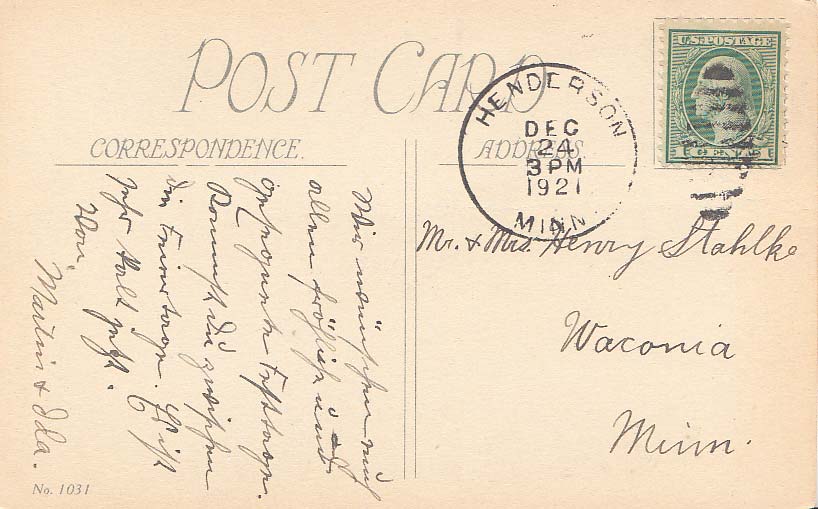 POST CARD
CORRESPONDENCE.
ADDRESS
U.S. POSTAGE
HENDERSON
DEC
24
3 PM
1921
MINN
Wir wünschen euch
allen fröhliche und
gesegnete Festtage.
Kommst du zwischen
die Feiertage. Es ist
sehr kalt jetzt.
Von,
Martin & Ida.
Mr. & Mrs. Henry Stahlke
Waconia
Minn.
No. 1031